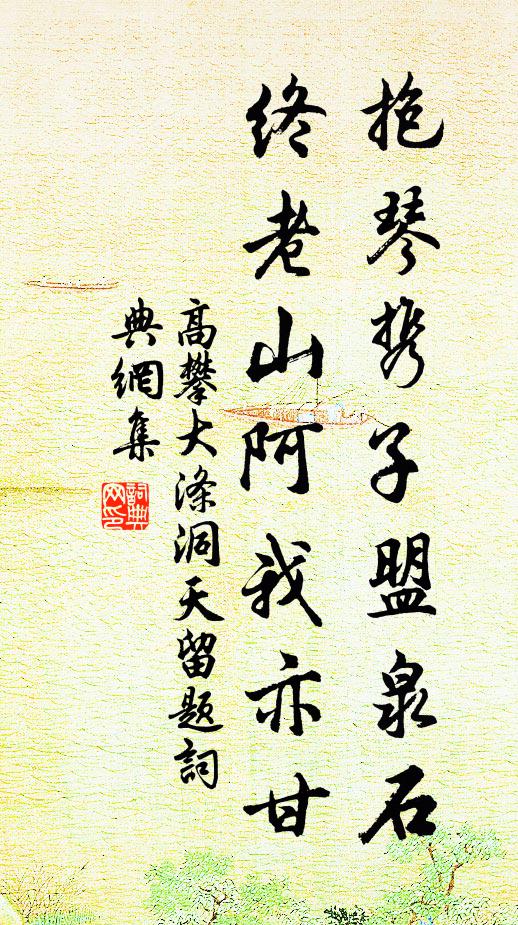 抱琴携子盟泉石
终老山阿我亦甘
高攀大涤洞天留题词
典網集
詞典網印